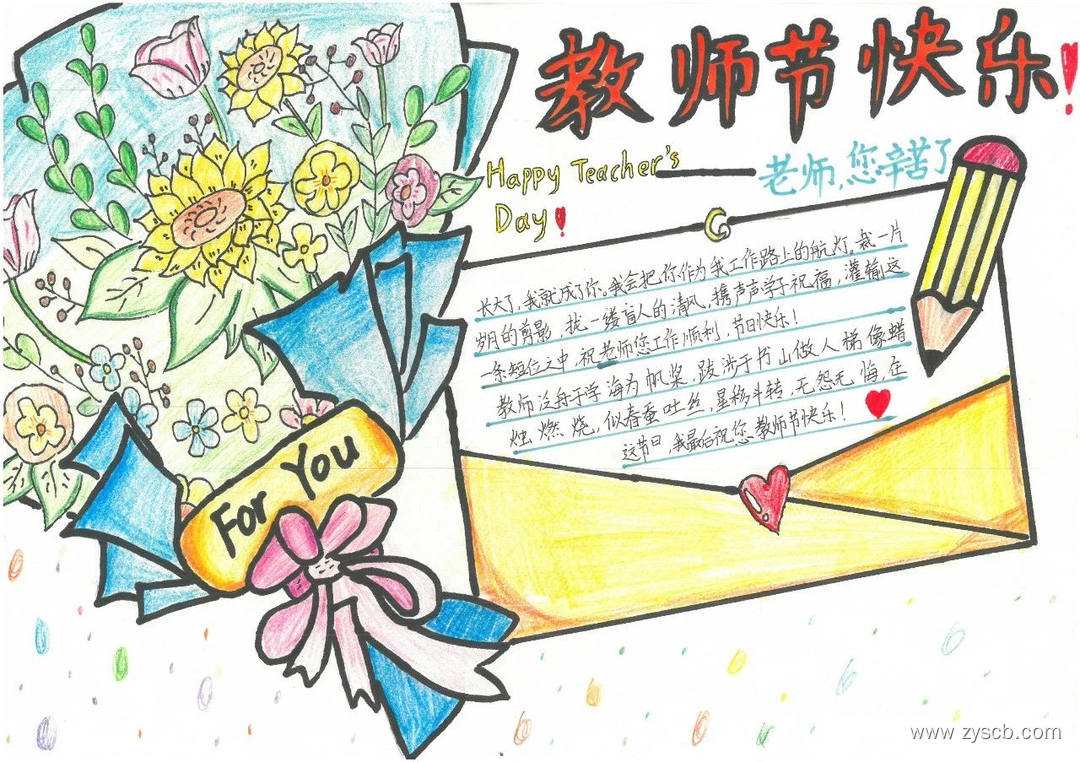 教师节快乐!
Happy Teacher's
Day!
老师,您辛苦了
长大了,我就成了你。我会把你作为我工作路上的航灯,裁一片
岁月的剪影,拢一缕盲人的清风,携声声学子祝福,灌输这
一条短位之中,祝老师您工作顺利,节日快乐!
教师泛舟于学海为帆桨,跋涉于书山做人梯像蜡
烛燃烧,似春蚕吐丝,星移斗转,无怨无悔,在
这节日,我最后祝您教师节快乐!
For You
www.zyscb.com